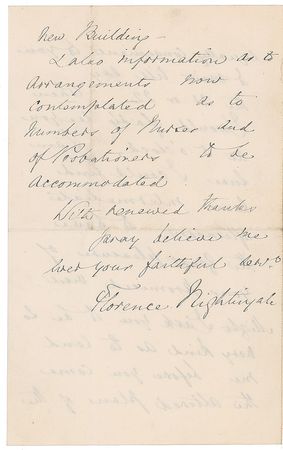 New Building –
& also information as to
arrangements now
contemplated as to
Numbers of Nurses and
of Probationers to be
accommodated.
With renewed thanks
pray believe me
ever your faithful serv.t
Florence Nightingale